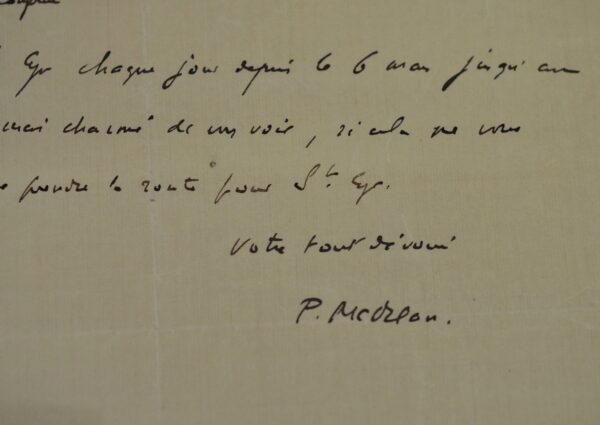 Cyr chaque jour depuis le 6 mai jusqu'au
serai charmé de vous voir, si cela ne vous
prendre la route pour St Cyr.
Votre tout dévoué
P. Mac Orlan.